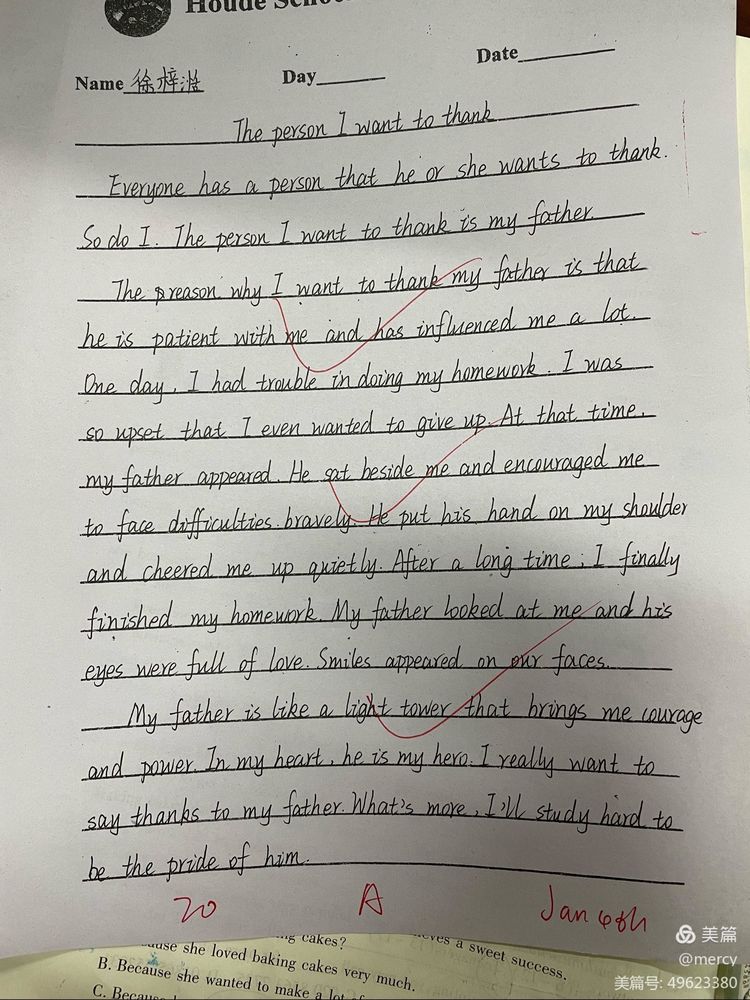 Houde School
Date
Name 徐梓浩 Day
The person I want to thank
Everyone has a person that he or she wants to thank.
So do I. The person I want to thank is my father.
The reason why I want to thank my father is that
he is patient with me and has influenced me a lot.
One day, I had trouble in doing my homework. I was
so upset that I even wanted to give up. At that time,
my father appeared. He sat beside me and encouraged me
to face difficulties bravely. He put his hand on my shoulder
and cheered me up quietly. After a long time, I finally
finished my homework. My father looked at me and his
eyes were full of love. Smiles appeared on our faces.
My father is like a light tower that brings me courage
and power. In my heart, he is my hero. I really want to
say thanks to my father. What's more, I'll study hard to
be the pride of him.
20 A Jan 6th
cakes?
a sweet success.
she loved baking cakes very much.
B. Because she wanted to make a lot of
C. Because
美篇
@mercy
美篇号: 49623380